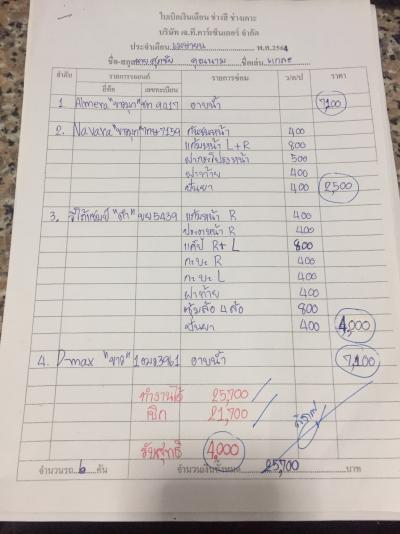 ใบเบิกเงินเดือน ช่างสี ช่างเคาะ
บริษัท เจ.ที.คาร์เซ็นเตอร์ จำกัด
ประจำเดือน เมษายน พ.ศ.2564
ชื่อ-สกุล นายสุภชัย คุณนาม ชื่อเล่น
ลำดับ รายการรถยนต์ รายการซ่อม ว/ด/ป ราคา
ยี่ห้อ เลขทะเบียน
1 Almera "ขาวมุก" 9017 อาบน้ำ 7,100
2. Navara "ขาวมุก" 7159 กันชนหน้า 400
แก้มหน้า L+R 800
ฝากระโปรงหน้า 500
ฝาท้าย 400
ปั่นยา 400 2,500
3. "ดำ" 5439 แก้มหน้า R 400
ประตูหน้า R 400
แค๊ป R+L 800
กะบะ R 400
กะบะ L 400
ฝาท้าย 400
ซุ้มล้อ 4 ล้อ 800
ปั่นยา 400 4,000
4. D-max "ขาว" 3961 อาบน้ำ 7,100
ทำงานได้ 25,700
เบิก 21,700
รับสุทธิ 4,000
จำนวนรถ 6 คัน จำนวนเงินทั้งหมด 25,700 บาท